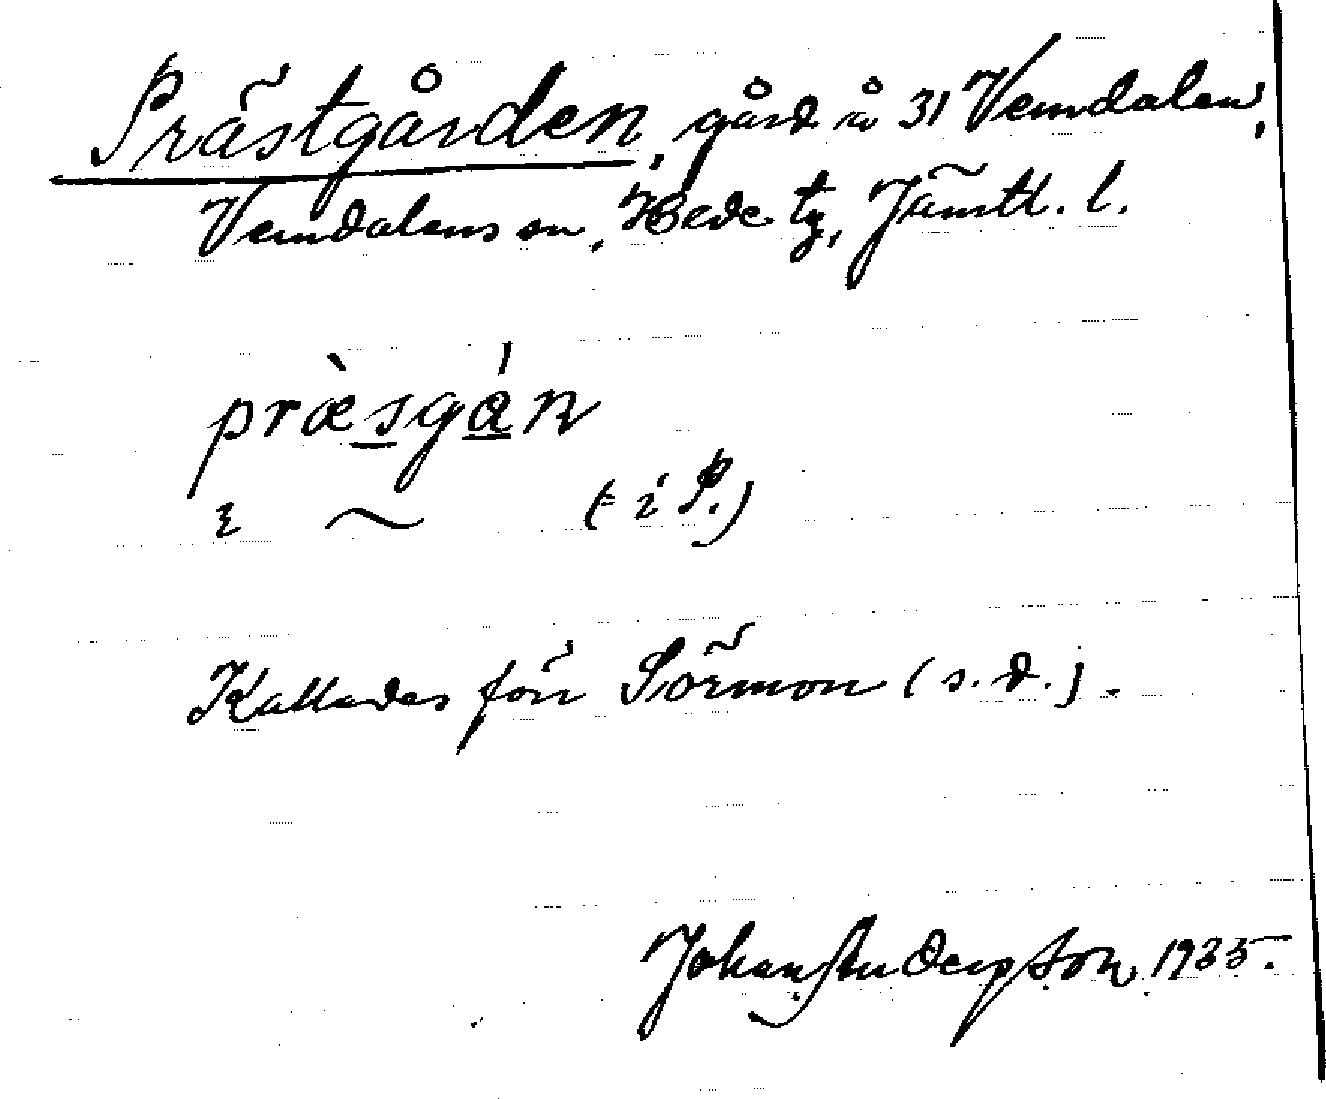 Prästgården, gård å 31 Vemdalen,
Vemdalens sn, Hede tg, Jämtl. l.
præ̀sgá̱n
ɩ ~ (= i P.)
Kallades förr Sörmon (s. d.).
Johan Anderson 1935.